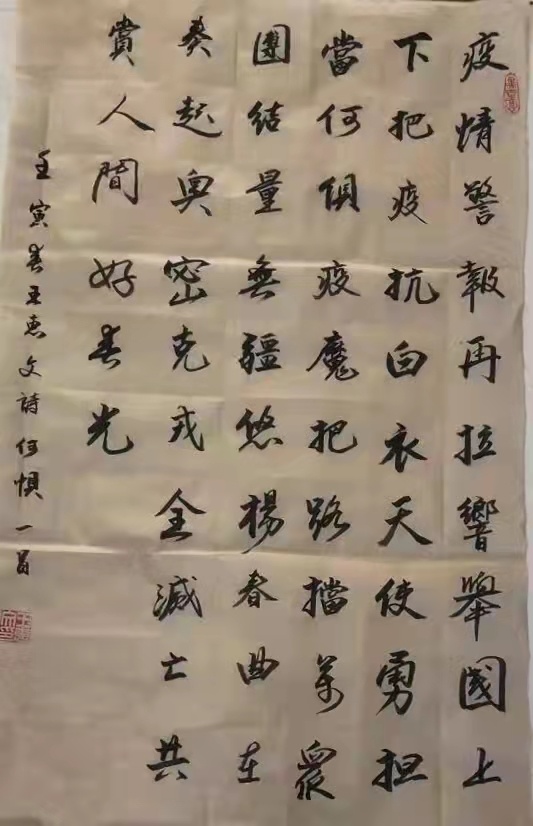 疫情警報再拉響舉國上
下把疫抗白衣天使勇担
當何俱疫魔把路擋萬眾
團結量無疆悠楊春曲在
奏起奥密克戎全滅亡共
賞人間好春光
壬寅春王恵文詩何惧一首